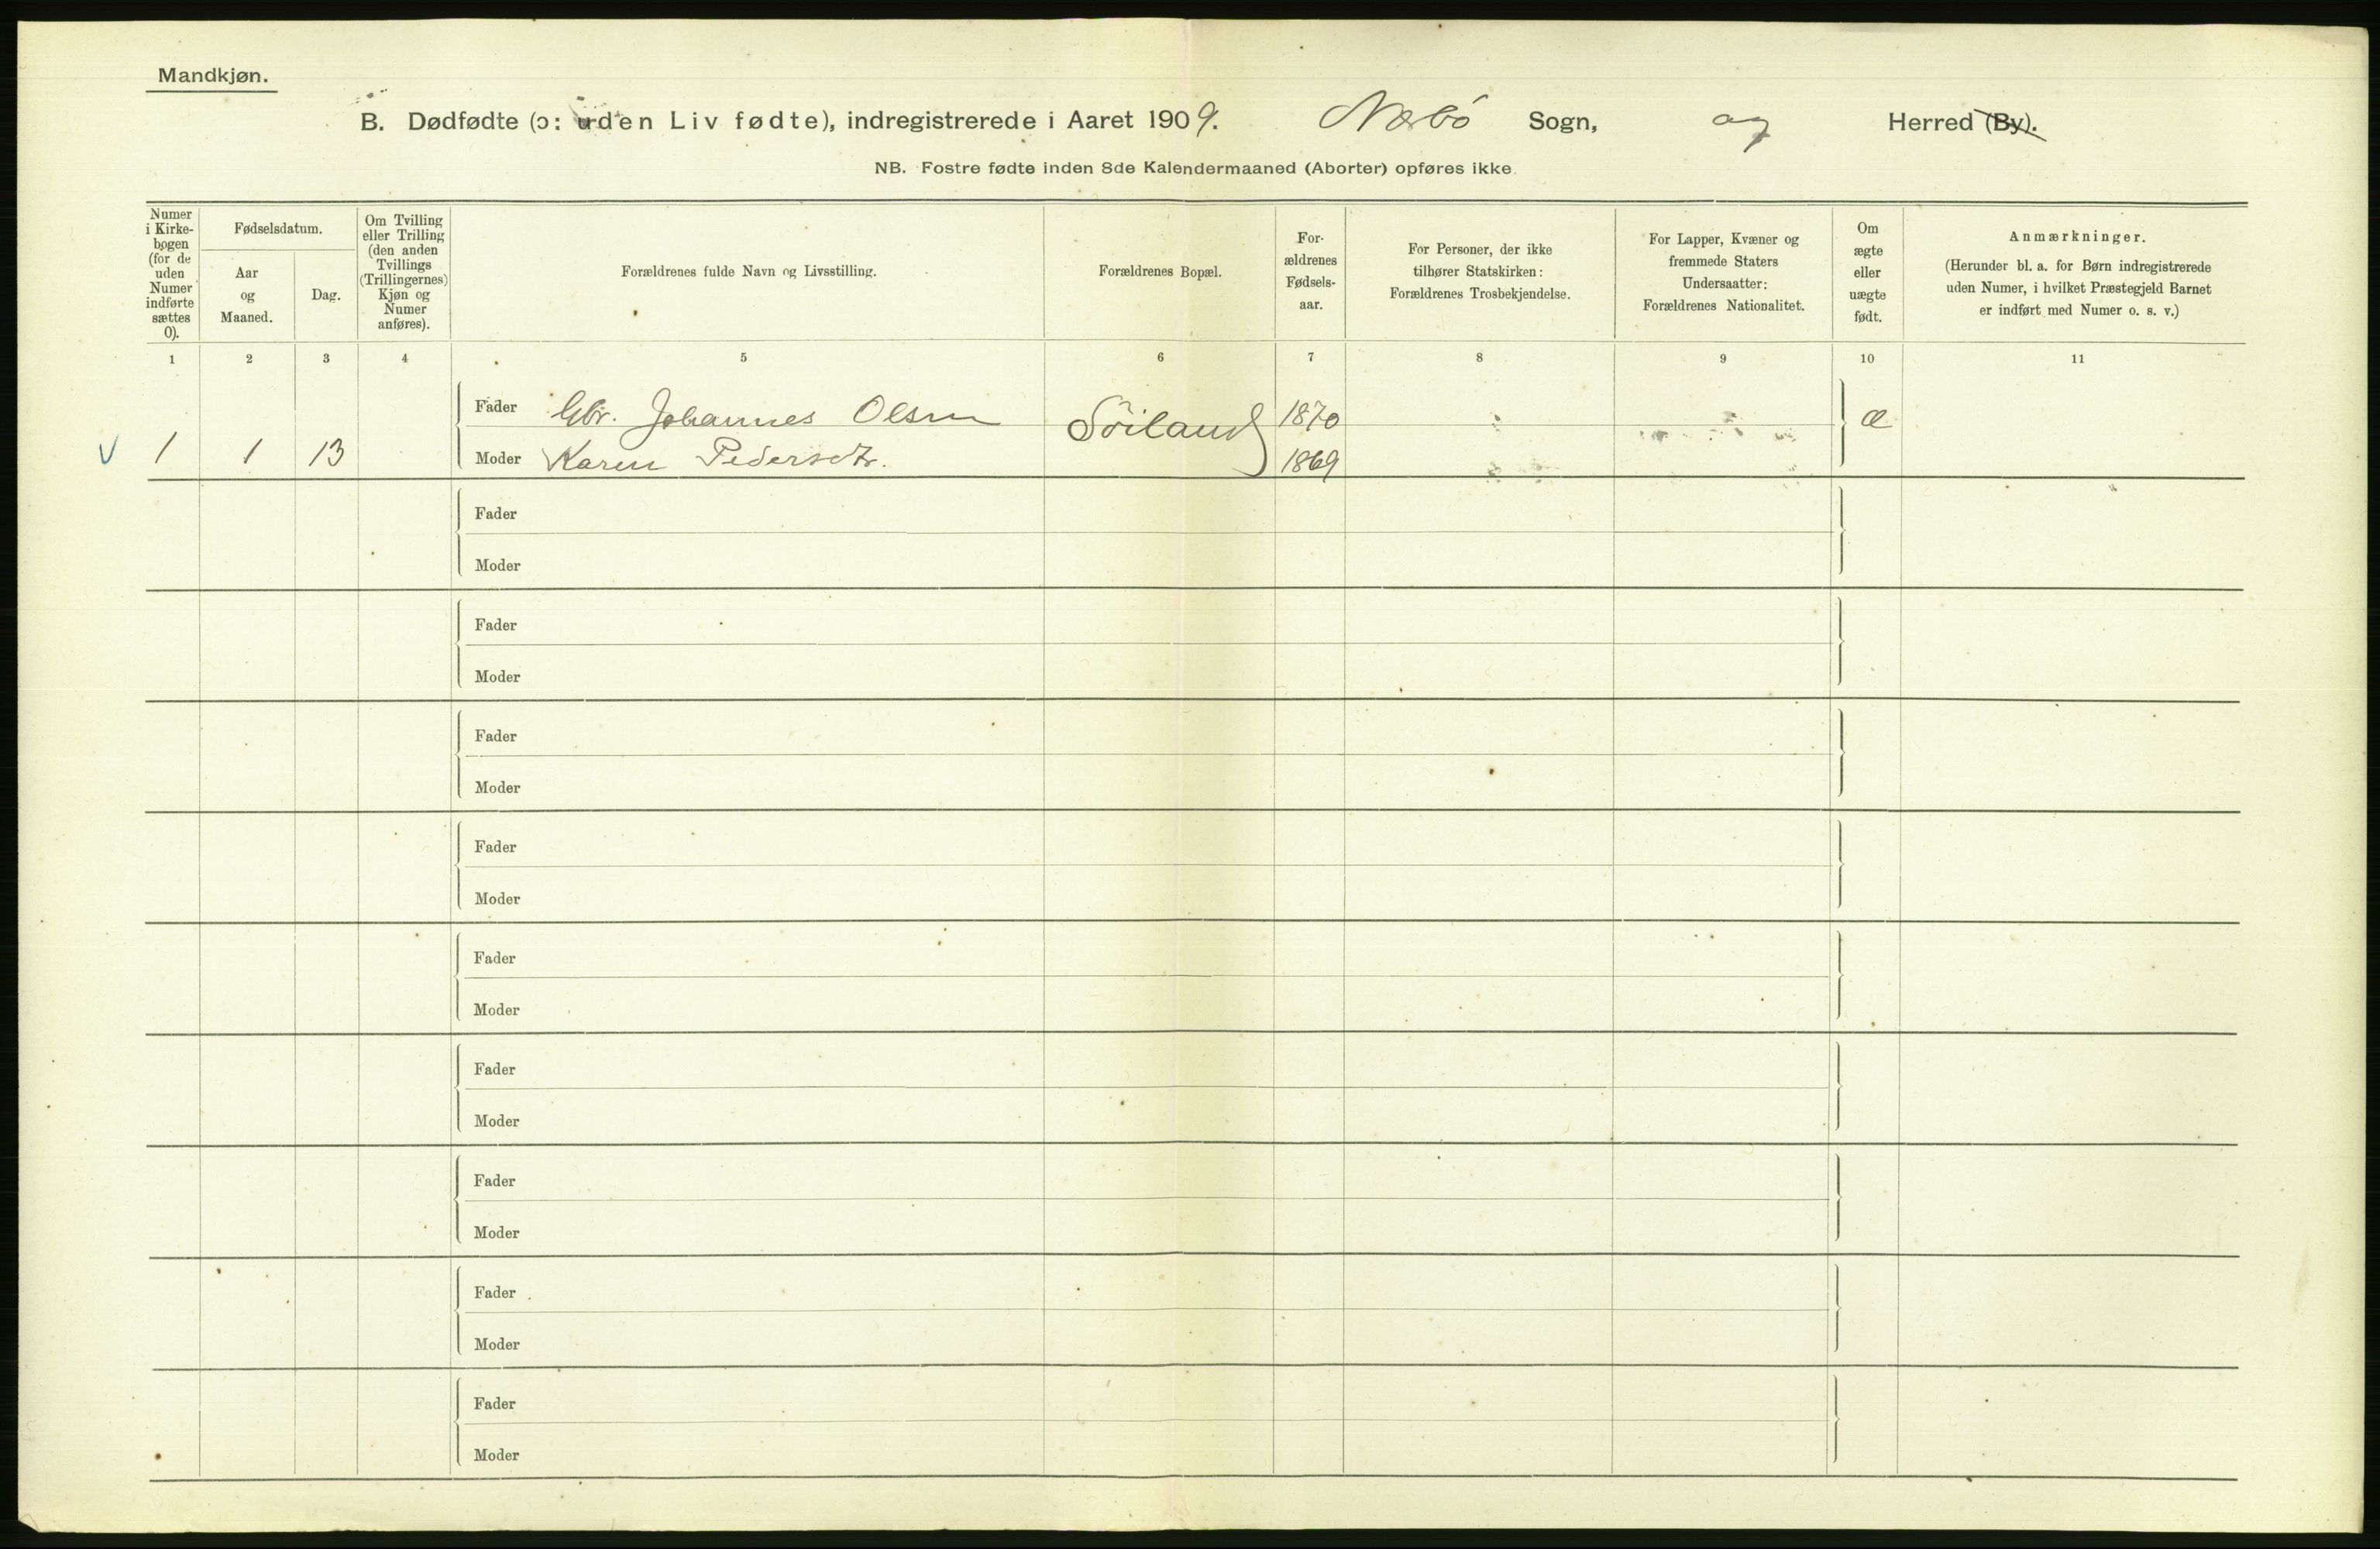 Mandkjøn.
B. Dødfødte (ɔ: uden Liv fødte), indregistrerede i Aaret 1909. Nærbö Sogn, og Herred (By).
NB. Fostre fødte inden 8de Kalendermaaned (Aborter) opføres ikke.
Numer
i Kirke-
bogen
(for de
uden
Numer
indførte
sættes
0).
Fødselsdatum.
Aar
og
Maaned.
Dag.
Om Tvilling
eller Trilling
(den anden
Tvillings
(Trillingernes)
Kjøn og
Numer
anføres).
Forældrenes fulde Navn og Livsstilling.
Forældrenes Bopæl.
For-
ældrenes
Fødsels-
aar.
For Personer, der ikke
tilhører Statskirken:
Forældrenes Trosbekjendelse.
For Lapper, Kvæner og
fremmede Staters
Undersaatter:
Forældrenes Nationalitet.
Om
ægte
eller
uægte
født.
Anmærkninger.
(Herunder bl. a. for Børn indregistrerede
uden Numer, i hvilket Præstegjeld Barnet
er indført med Numer o. s. v.)
1 2 3 4 5 6 7 8 9 10 11
Fader Gbr. Johannes Olsen Söiland 1870 æ
V 1 1 13 Moder Karen Pedersdtr. 1869
Fader
Moder
Fader
Moder
Fader
Moder
Fader
Moder
Fader
Moder
Fader
Moder
Fader
Moder
Fader
Moder
Fader
Moder